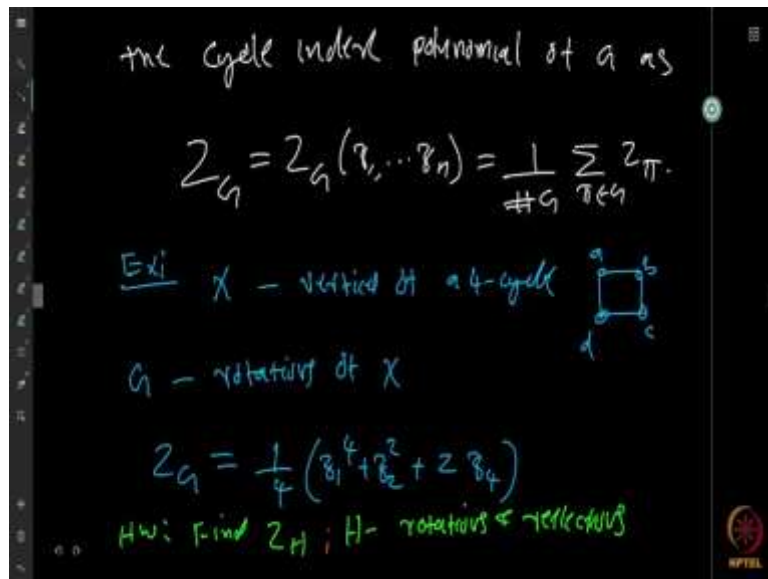 the cycle index polynomial of G as
Z_G = Z_G(z_1, ... z_n) = 1/#G Σ_{π∈G} Z_π.
Ex: X - vertices of a 4-cycle
a b
d c
G - rotations of X
Z_G = 1/4 (z_1^4 + z_2^2 + 2 z_4)
HW: Find Z_H ; H - rotations & reflections
NPTEL